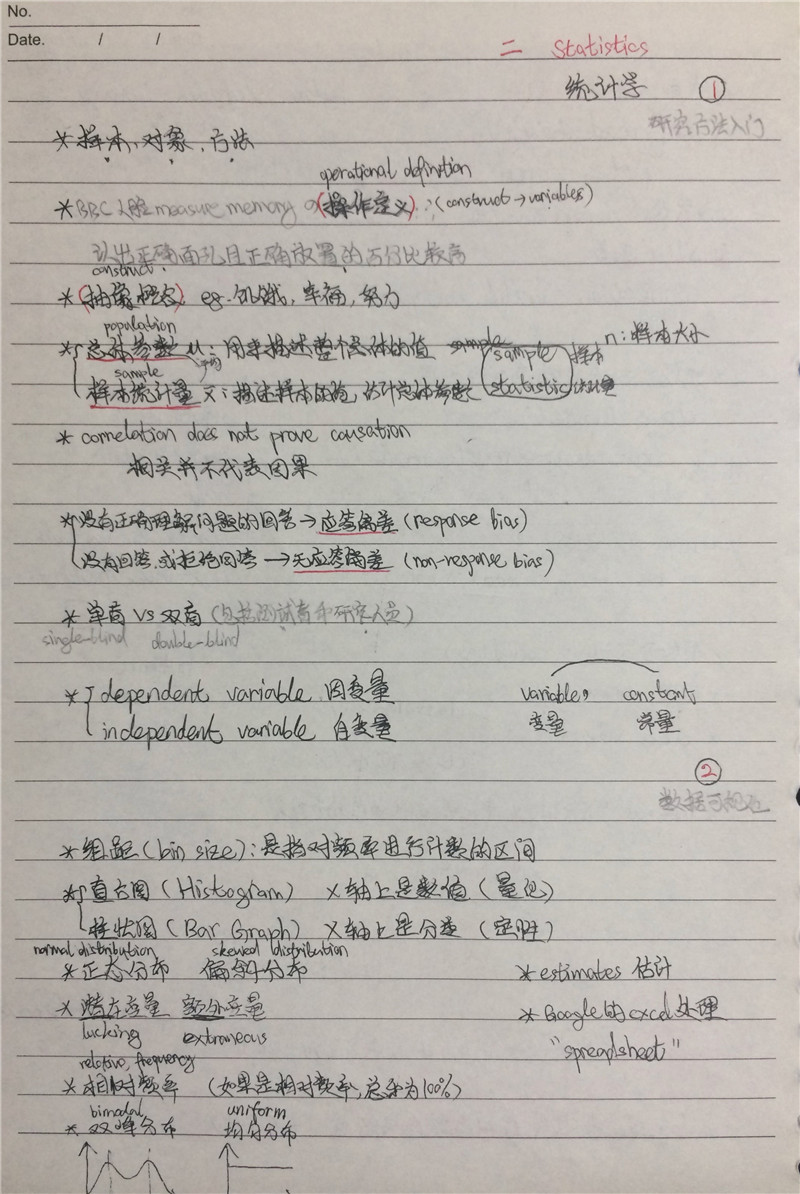 No.
Date. / /
二 Statistics
统计学 ①
研究方法入门
* 样本、对象、方法
operational definition
* BBC 人脸 measure memory の(操作定义):(construct→variables)
认出正确面孔且正确放置的百分比较高
construct
* (抽象概念) eg. 饥饿, 幸福, 努力
population
* 总体参数 μ: 用来描述整个总体的值
平均
sample statistic 样本统计量 n: 样本大小
sample
样本统计量 x̄: 描述样本的值, 估计总体参数
* correlation does not prove causation
相关并不代表因果
* 没有正确理解问题的回答→应答偏差 (response bias)
没有回答或拒绝回答→无应答偏差 (non-response bias)
* 单盲 VS 双盲 (包括测试者和研究人员)
single-blind double-blind
* dependent variable 因变量
independent variable 自变量
variable, constant
变量 常量
②
数据可视化
* 组距 (bin size): 是指对频率进行计数的区间
* 直方图 (Histogram) X轴上是数值 (量化)
柱状图 (Bar Graph) X轴上是分类 (定性)
normal distribution skewed distribution
* 正态分布 偏斜分布
* estimates 估计
* 潜在变量 额外变量
lucking extraneous
* Google的excel处理
"spreadsheet"
relative frequency
* 相对频率 (如果是相对频率, 总和为100%)
bimodal uniform
* 双峰分布 均匀分布